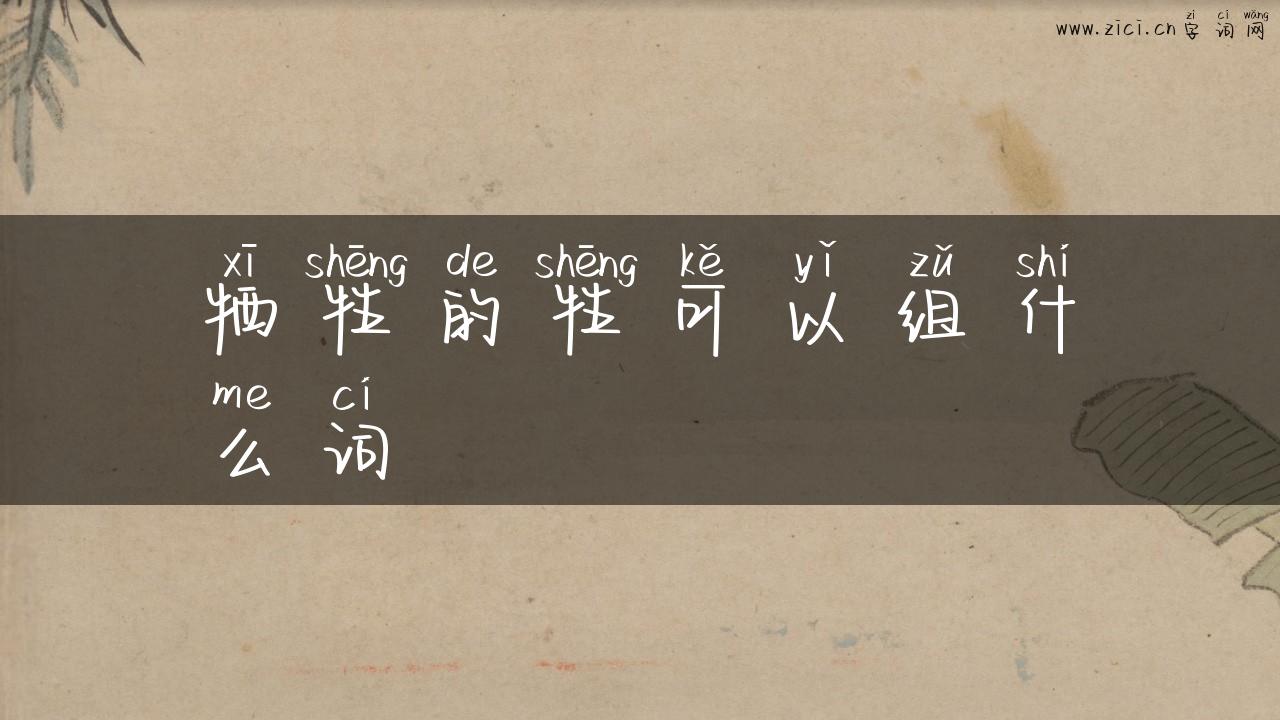 zì cí wǎng
www.zici.cn 字词网
xī shēng de shēng kě yǐ zǔ shí
牺牲的牲可以组什
me cí
么词